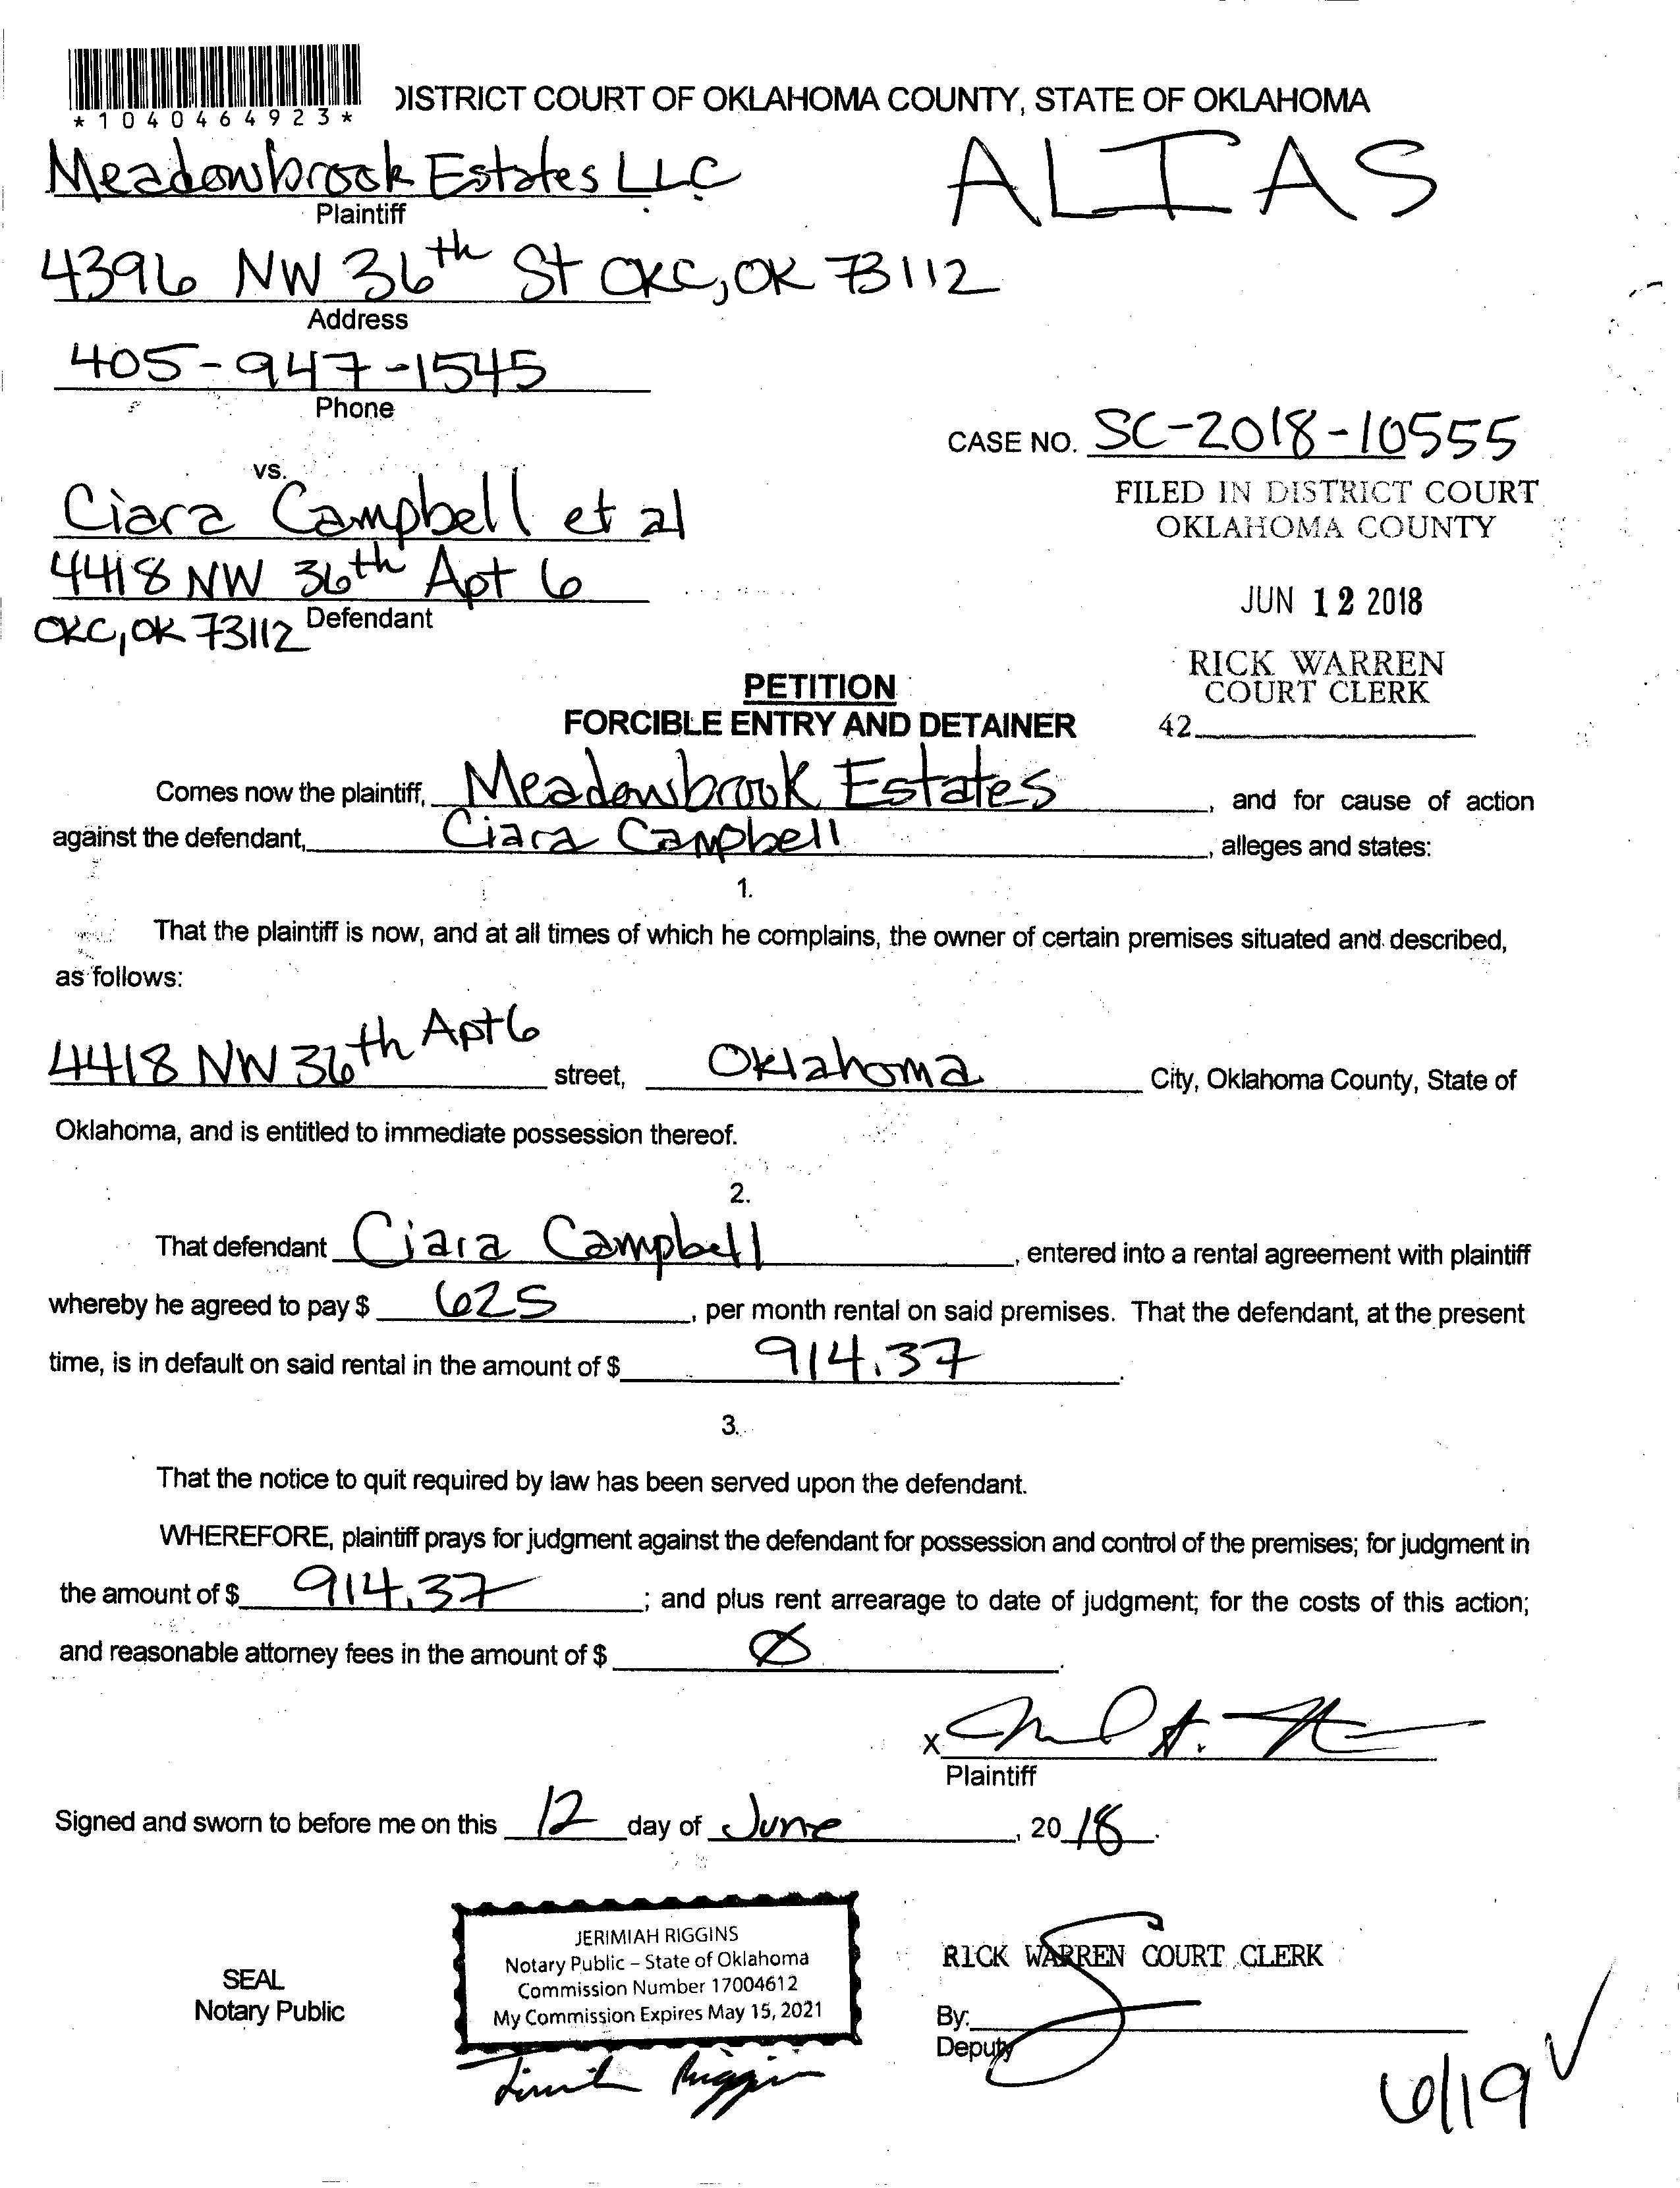 *1040464923*
DISTRICT COURT OF OKLAHOMA COUNTY, STATE OF OKLAHOMA
Meadowbrook Estates LLC
Plaintiff
ALIAS
4396 NW 36th St OKC, OK 73112
Address
405-947-1545
Phone
CASE NO. SC-2018-10555
vs.
FILED IN DISTRICT COURT
OKLAHOMA COUNTY
Ciara Campbell et al
4418 NW 36th Apt 6
JUN 12 2018
OKC, OK 73112 Defendant
RICK WARREN
COURT CLERK
42
PETITION
FORCIBLE ENTRY AND DETAINER
Comes now the plaintiff, Meadowbrook Estates, and for cause of action
against the defendant, Ciara Campbell, alleges and states:
1.
That the plaintiff is now, and at all times of which he complains, the owner of certain premises situated and described,
as follows:
4418 NW 36th Apt 6 street, Oklahoma City, Oklahoma County, State of
Oklahoma, and is entitled to immediate possession thereof.
2.
That defendant Ciara Campbell, entered into a rental agreement with plaintiff
whereby he agreed to pay $ 625, per month rental on said premises. That the defendant, at the present
time, is in default on said rental in the amount of $ 914.37.
3.
That the notice to quit required by law has been served upon the defendant.
WHEREFORE, plaintiff prays for judgment against the defendant for possession and control of the premises; for judgment in
the amount of $ 914.37; and plus rent arrearage to date of judgment; for the costs of this action;
and reasonable attorney fees in the amount of $ Ø.
X
Plaintiff
Signed and sworn to before me on this 12 day of June, 2018.
SEAL
Notary Public
JERIMIAH RIGGINS
Notary Public – State of Oklahoma
Commission Number 17004612
My Commission Expires May 15, 2021
RICK WARREN COURT CLERK
By:
Deputy
6/19 ✓